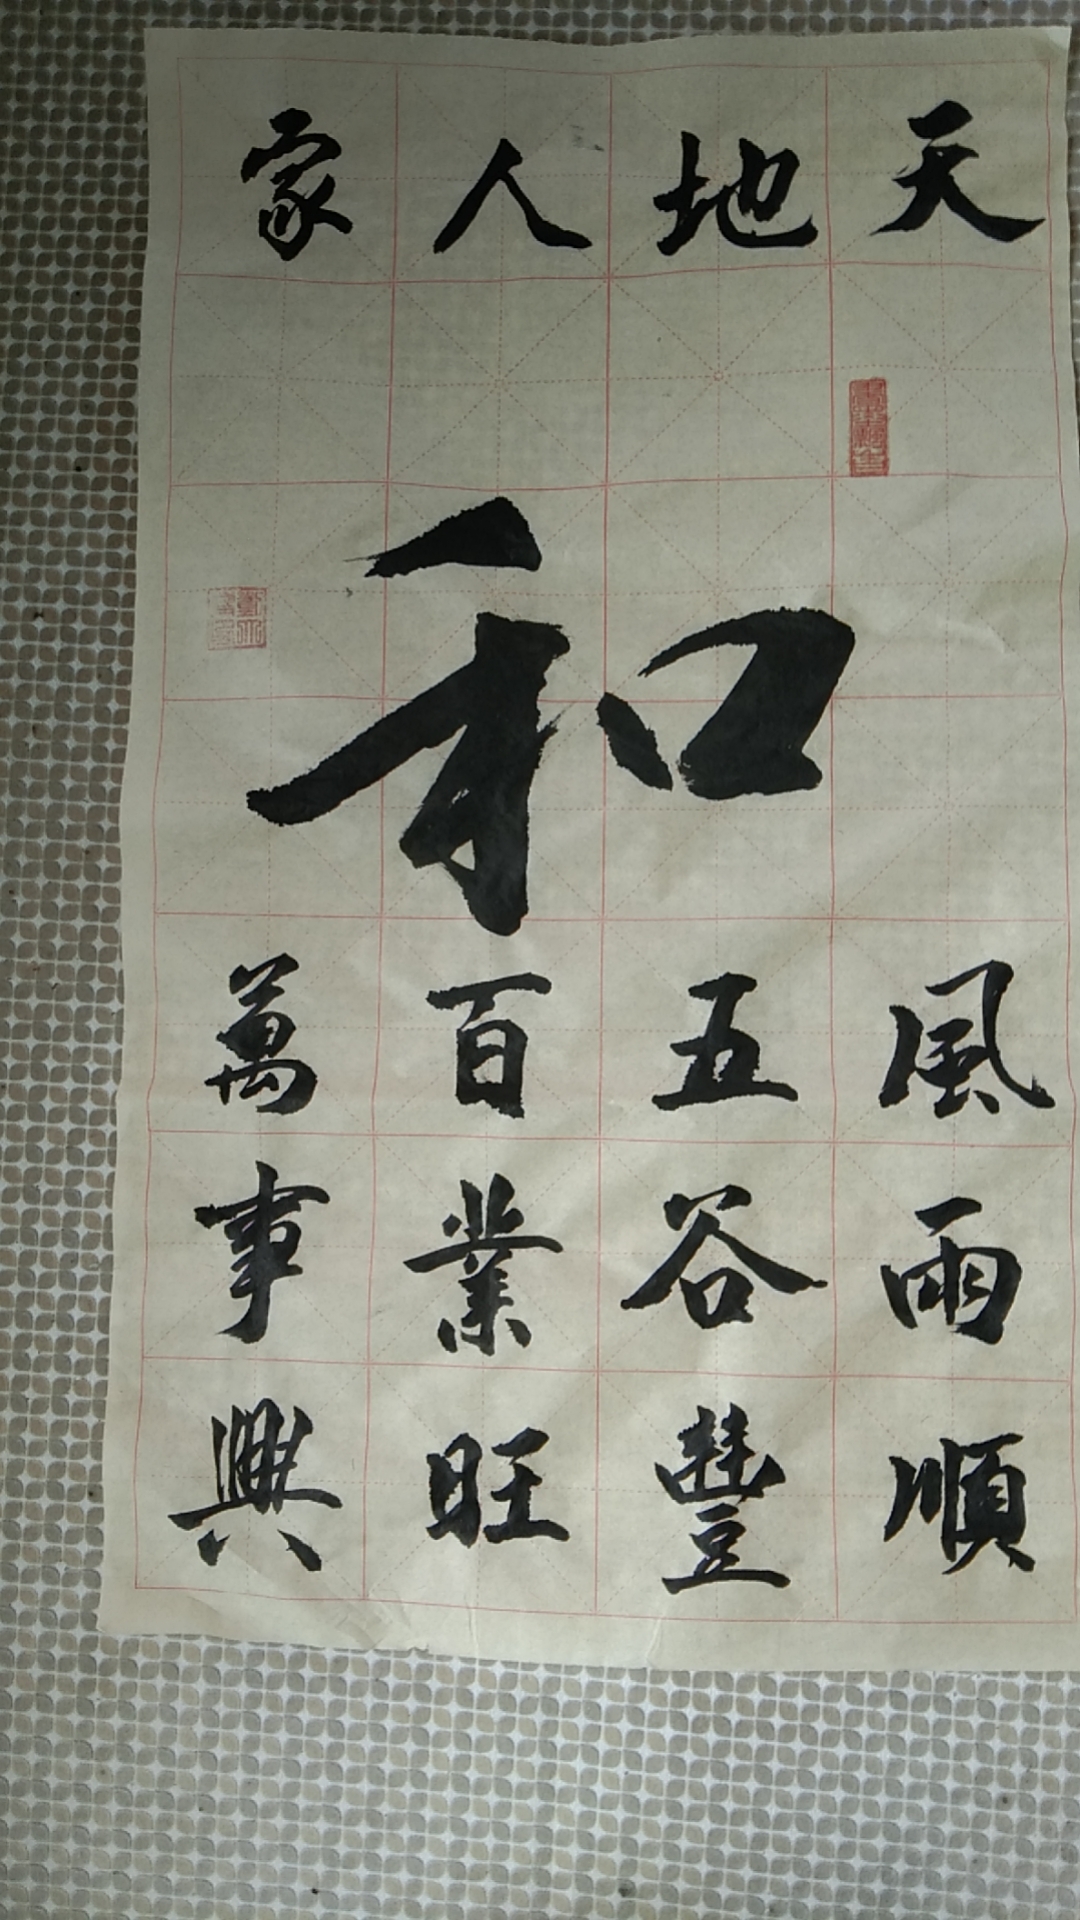 天地人家
和
風雨順
五谷豐
百業旺
萬事興